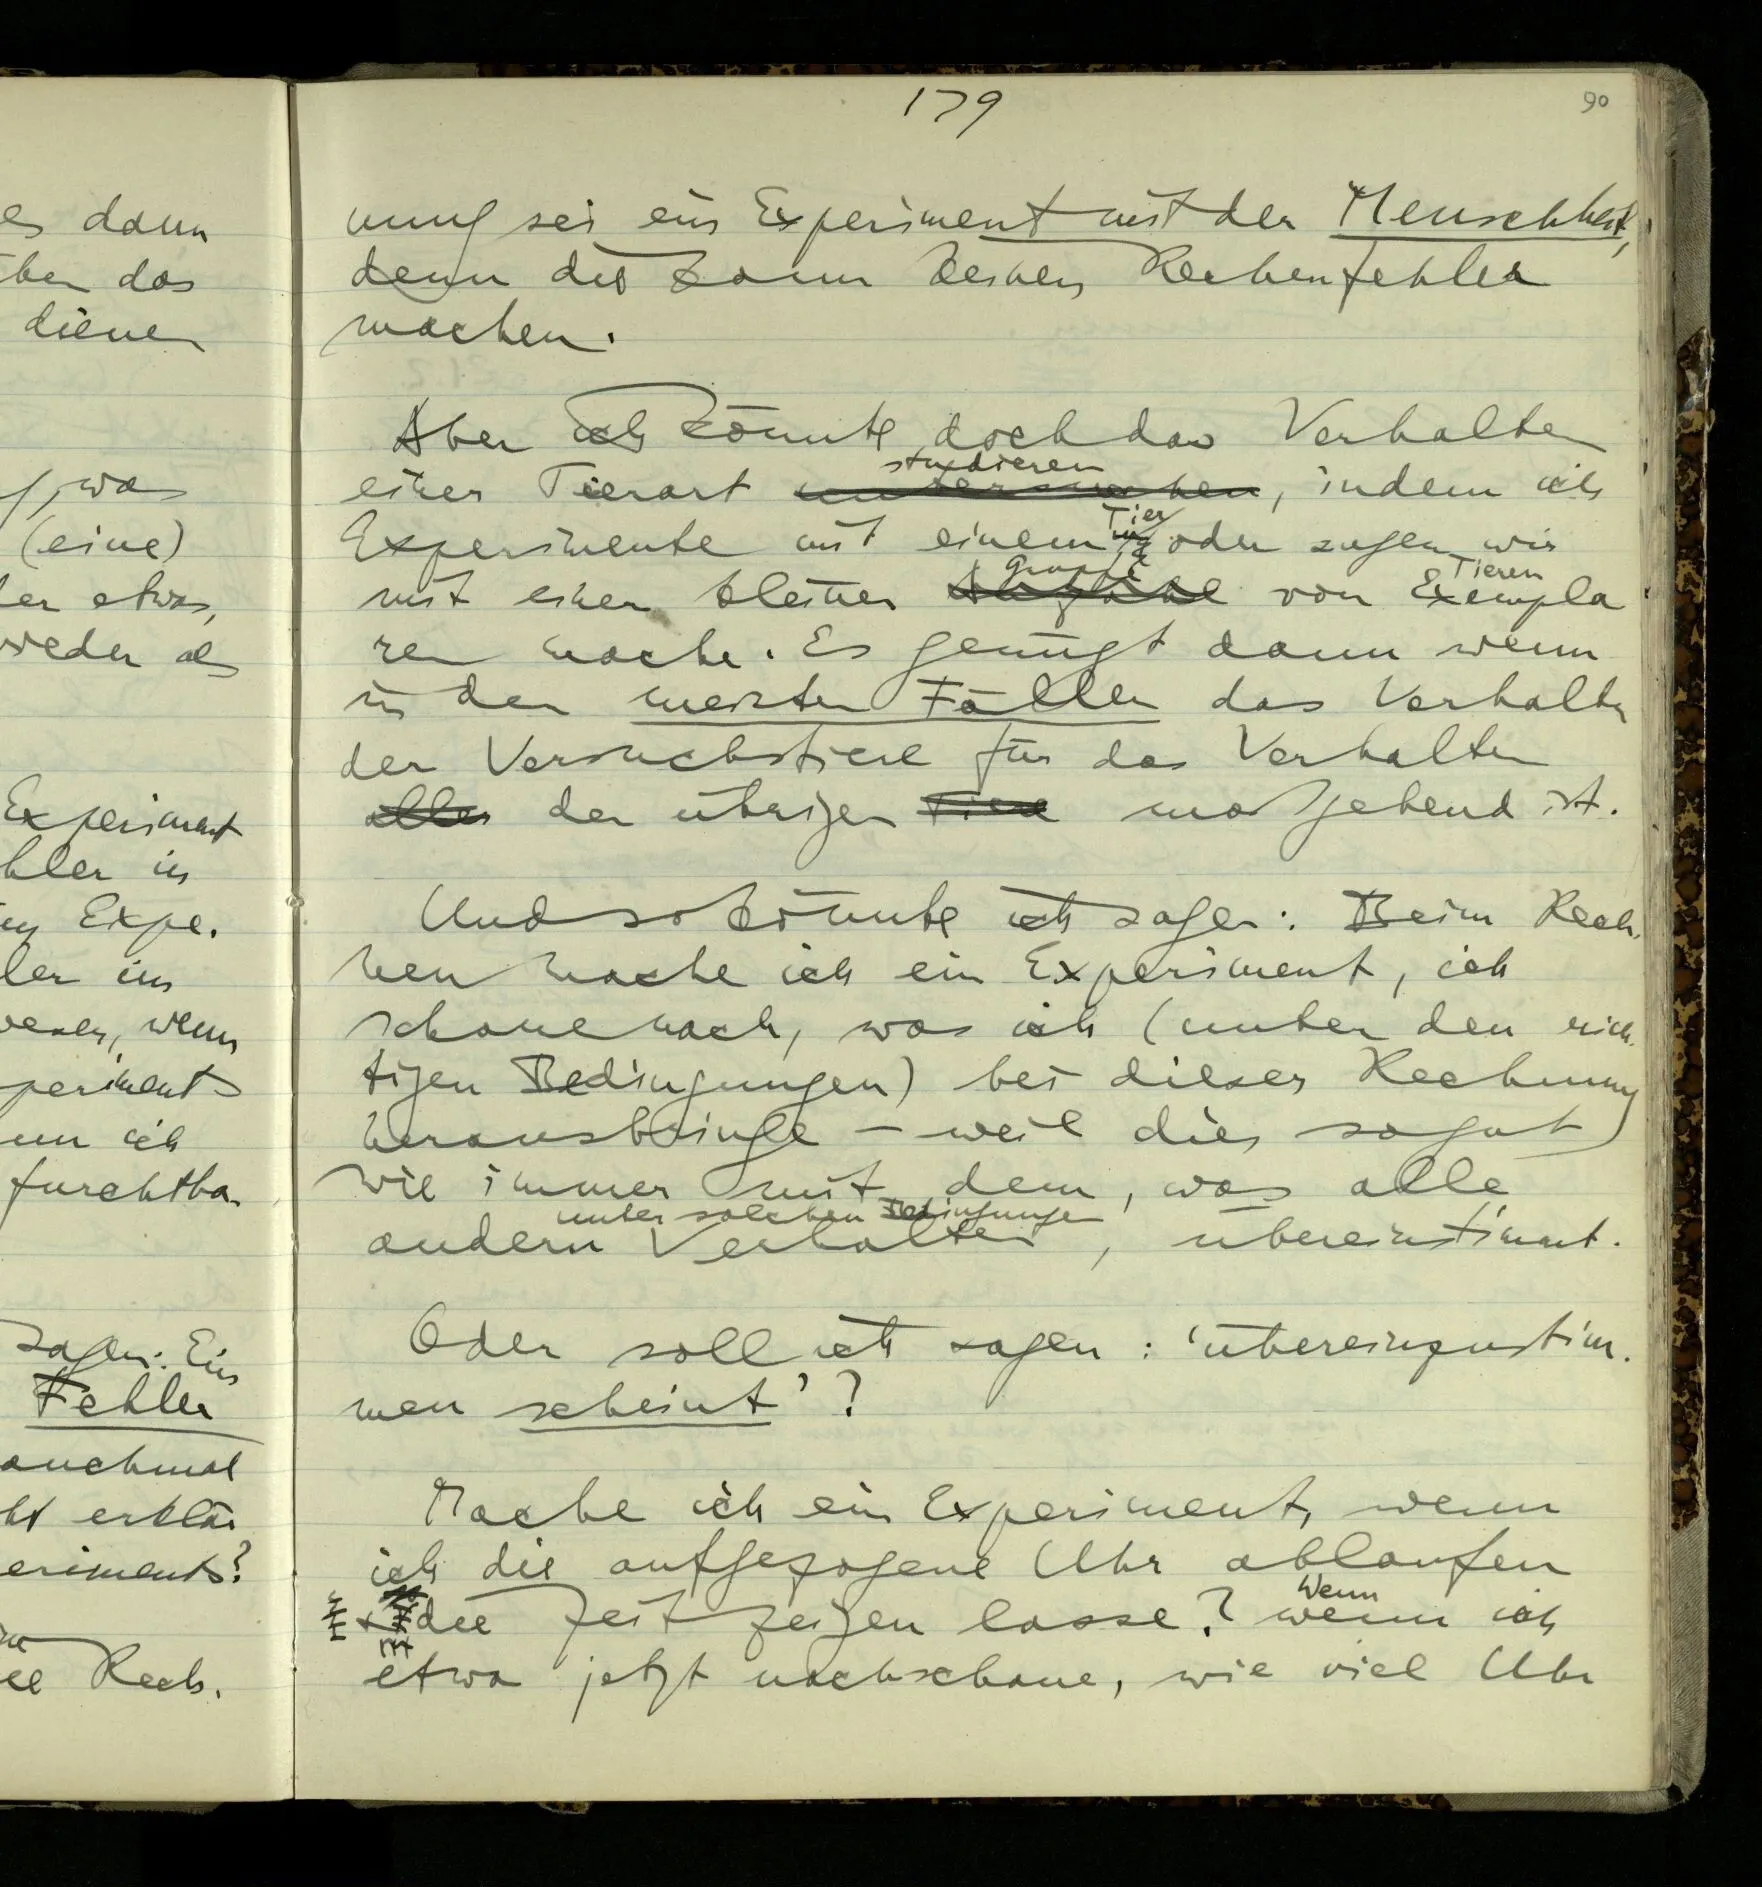 179
90
es dann
ben das
dienen
, was
(eine)
der etwas,
weder als
Experiment
hler in
Expe-
ler im
wesen, wenn
periments
nn ich
furchtba-
sagen: Ein
Fehler
manchmal
ht erklär
eriments?
Rech-
nung sei ein Experiment mit der Menschheit,
denn die kann keinen Rechenfehler
machen.
Aber ich könnte doch das Verhalten
studieren
einer Tierart untersuchen, indem ich
Tier
Experimente mit einem oder sagen wir
Gruppe Tieren
mit einer kleinen Anzahl von Exempla
ren mache. Es genügt dann wenn
in den meisten Fällen das Verhalten
der Versuchstiere für das Verhalten
aller der übrigen Tiere maßgebend ist.
Und so könnte ich sagen: Beim Rech-
nen mache ich ein Experiment, ich
schaue nach, was ich (unter den rich-
tigen Bedingungen) bei dieser Rechnung
herausbringe – weil dies so gut
wie immer mit dem, was alle
unter solchen Bedingungen
andern Verhalten, übereinstimmt.
Oder soll ich sagen: 'übereinzustim-
men scheint'?
Mache ich ein Experiment, wenn
ich die aufgezogene Uhr ablaufen
Wenn
& die Zeit zeigen lasse? wenn ich
etwa jetzt nachschaue, wie viel Uhr